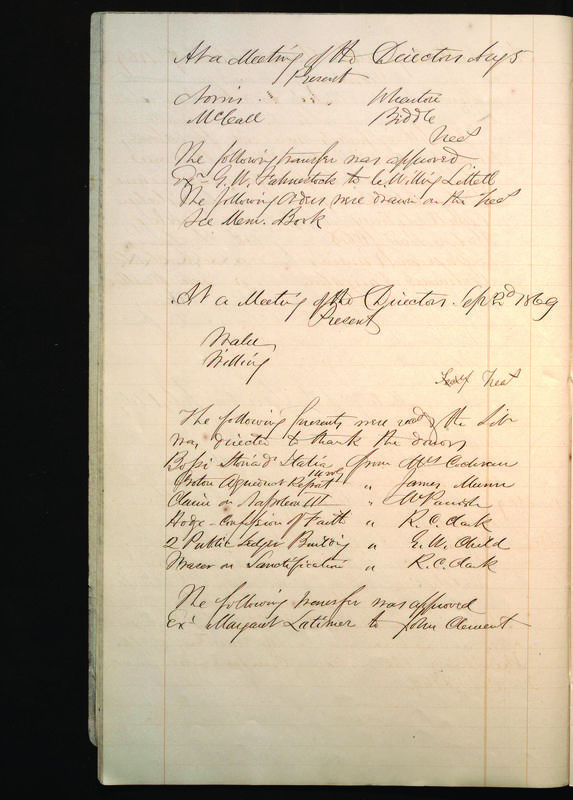 At a Meeting of the Directors Aug 5
Present
Norris Wharton
McCall Biddle
Treas
The following transfer was approved
Exr G. W. Fahnestock to C. Willing Littell
The following Orders were drawn on the Treas
See Mem. Book
At a Meeting of the Directors Sept 2d 1869
Present
Waln
Willing
Treas
The following presents were recd & the Libn
was directed to thank the donors
Bossi Storia d'Italia 14 vols from Mrs Cochran
Croton Aqueduct Report " James Munn
Claim on Napoleon III " W Parrish
Hodge - Confession of Faith " R. C. Clark
2 Public Ledger Building " G. W. Child
Fraser on Sanctification " R. C. Clark
The following transfer was approved
Exr Margaret Latimer to John Clement